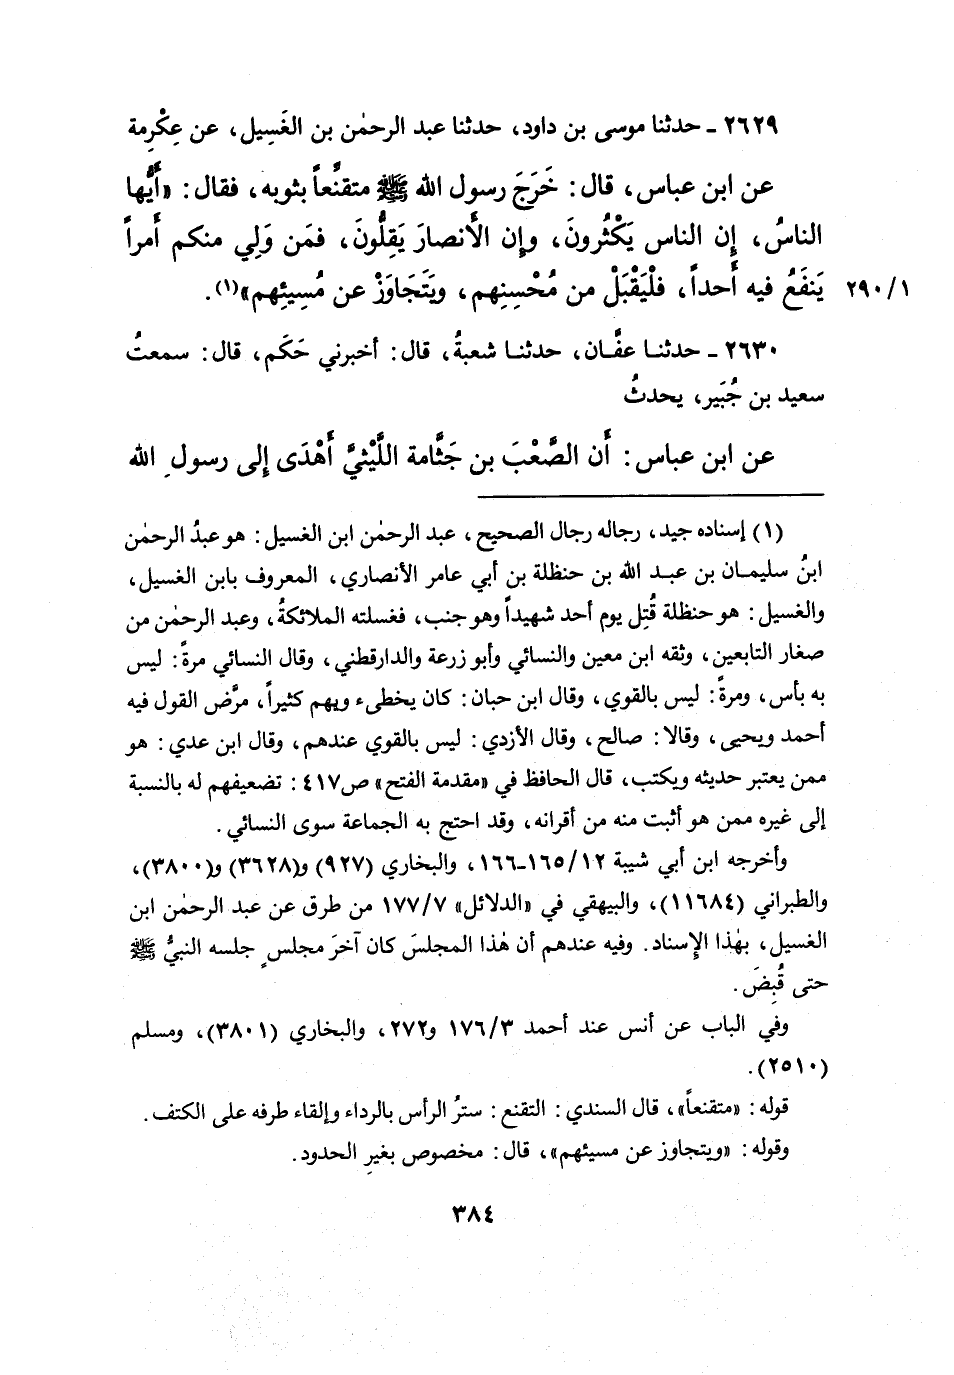 ٢٦٢٩ ـ حدثنا موسى بن داود، حدثنا عبد الرحمٰن بن الغَسِيل، عن عِكْرِمة
عن ابن عباس، قال: خَرَجَ رسول الله ﷺ متقنِّعاً بثوبه، فقال: «أَيُّها
الناسُ، إِن الناس يَكْثُرونَ، وإِن الأَنصارَ يَقِلُّونَ، فمَن وَلِي منكم أَمراً
يَنفَعُ فيه أَحداً، فلْيَقْبَلْ من مُحْسِنِهم، ويَتَجاوَزْ عن مُسِيئِهم»(١).
٢٩٠/١
٢٦٣٠ ـ حدثنـا عفَّـان، حدثنـا شعبةُ، قال: أخبرني حَكَم، قال: سمعتُ
سعيد بن جُبَير، يحدثُ
عن ابن عباس: أَن الصَّعْبَ بن جَثَّامة اللَّيْثيَّ أَهْدَى إِلى رسولِ الله
(١) إسناده جيد، رجاله رجال الصحيح، عبد الرحمٰن ابن الغسيل: هو عبدُ الرحمٰن
ابنُ سليمـان بن عبـد الله بن حنظلة بن أبي عامر الأنصاري، المعروف بابن الغسيل،
والغسيل: هو حنظلة قُتِل يوم أحد شهيداً وهو جنب، فغسلته الملائكةُ، وعبد الرحمٰن من
صغار التابعين، وثقه ابن معين والنسائي وأبو زرعة والدارقطني، وقال النسائي مرةً: ليس
به بأس، ومرةً: ليس بالقوي، وقال ابن حبان: كان يخطىء ويهم كثيراً، مرَّض القول فيه
أحمد ويحيى، وقالا: صالح، وقال الأزدي: ليس بالقوي عندهم، وقال ابن عدي: هو
ممن يعتبر حديثه ويكتب، قال الحافظ في «مقدمة الفتح» ص٤١٧: تضعيفهم له بالنسبة
إلى غيره ممن هو أثبت منه من أقرانه، وقد احتج به الجماعة سوى النسائي.
وأخرجه ابن أبي شيبة ١٢/١٦٥-١٦٦، والبخاري (٩٢٧) و(٣٦٢٨) و(٣٨٠٠)،
والطبراني (١١٦٨٤)، والبيهقي في «الدلائل» ١٧٧/٧ من طرق عن عبد الرحمٰن ابن
الغسيل، بهٰذا الإِسناد. وفيه عندهم أن هٰذا المجلسَ كان آخرَ مجلسٍ جلسه النبيُّ ﷺ
حتى قُبِضَ.
وفي الباب عن أنس عند أحمد ١٧٦/٣ و٢٧٢، والبخاري (٣٨٠١)، ومسلم
(٢٥١٠).
قوله: «متقنعاً»، قال السندي: التقنع: سترُ الرأس بالرداء وإلقاء طرفه على الكتف.
وقوله: «ويتجاوز عن مسيئهم»، قال: مخصوص بغيرِ الحدود.
٣٨٤